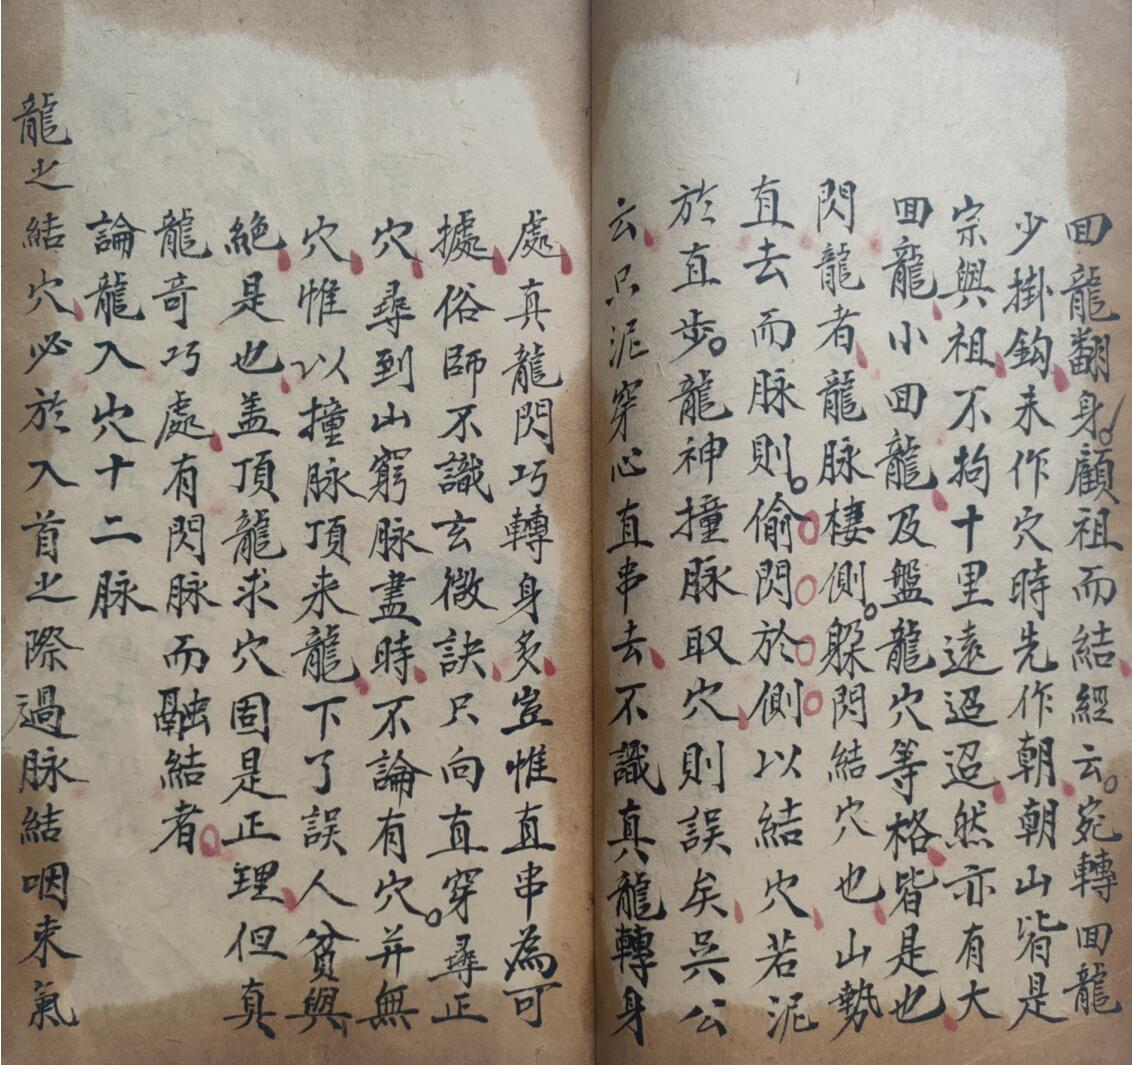 回龍翻身顧祖而結經云宛轉回龍
少掛鈎未作穴時先作朝朝山皆是
宗與祖不拘十里遠迢迢然亦有大
回龍小回龍及盤龍穴等格皆是也
閃龍者龍脉棲側躲閃結穴也山勢
直去而脉則偷閃於側以結穴若泥
於直步龍神撞脉取穴則誤矣吳公
云只泥穿心直串去不識真龍轉身
處真龍閃巧轉身多豈惟直串為可
據俗師不識玄微訣只向直穿尋正
穴尋到山窮脉盡時不論有穴并無
穴惟以撞脉頂来龍下了誤人貧與
絶是也盖頂龍求穴固是正理但真
龍奇巧處有閃脉而融結者
論龍入穴十二脉
龍之結穴必於入首之際過脉結咽束氣